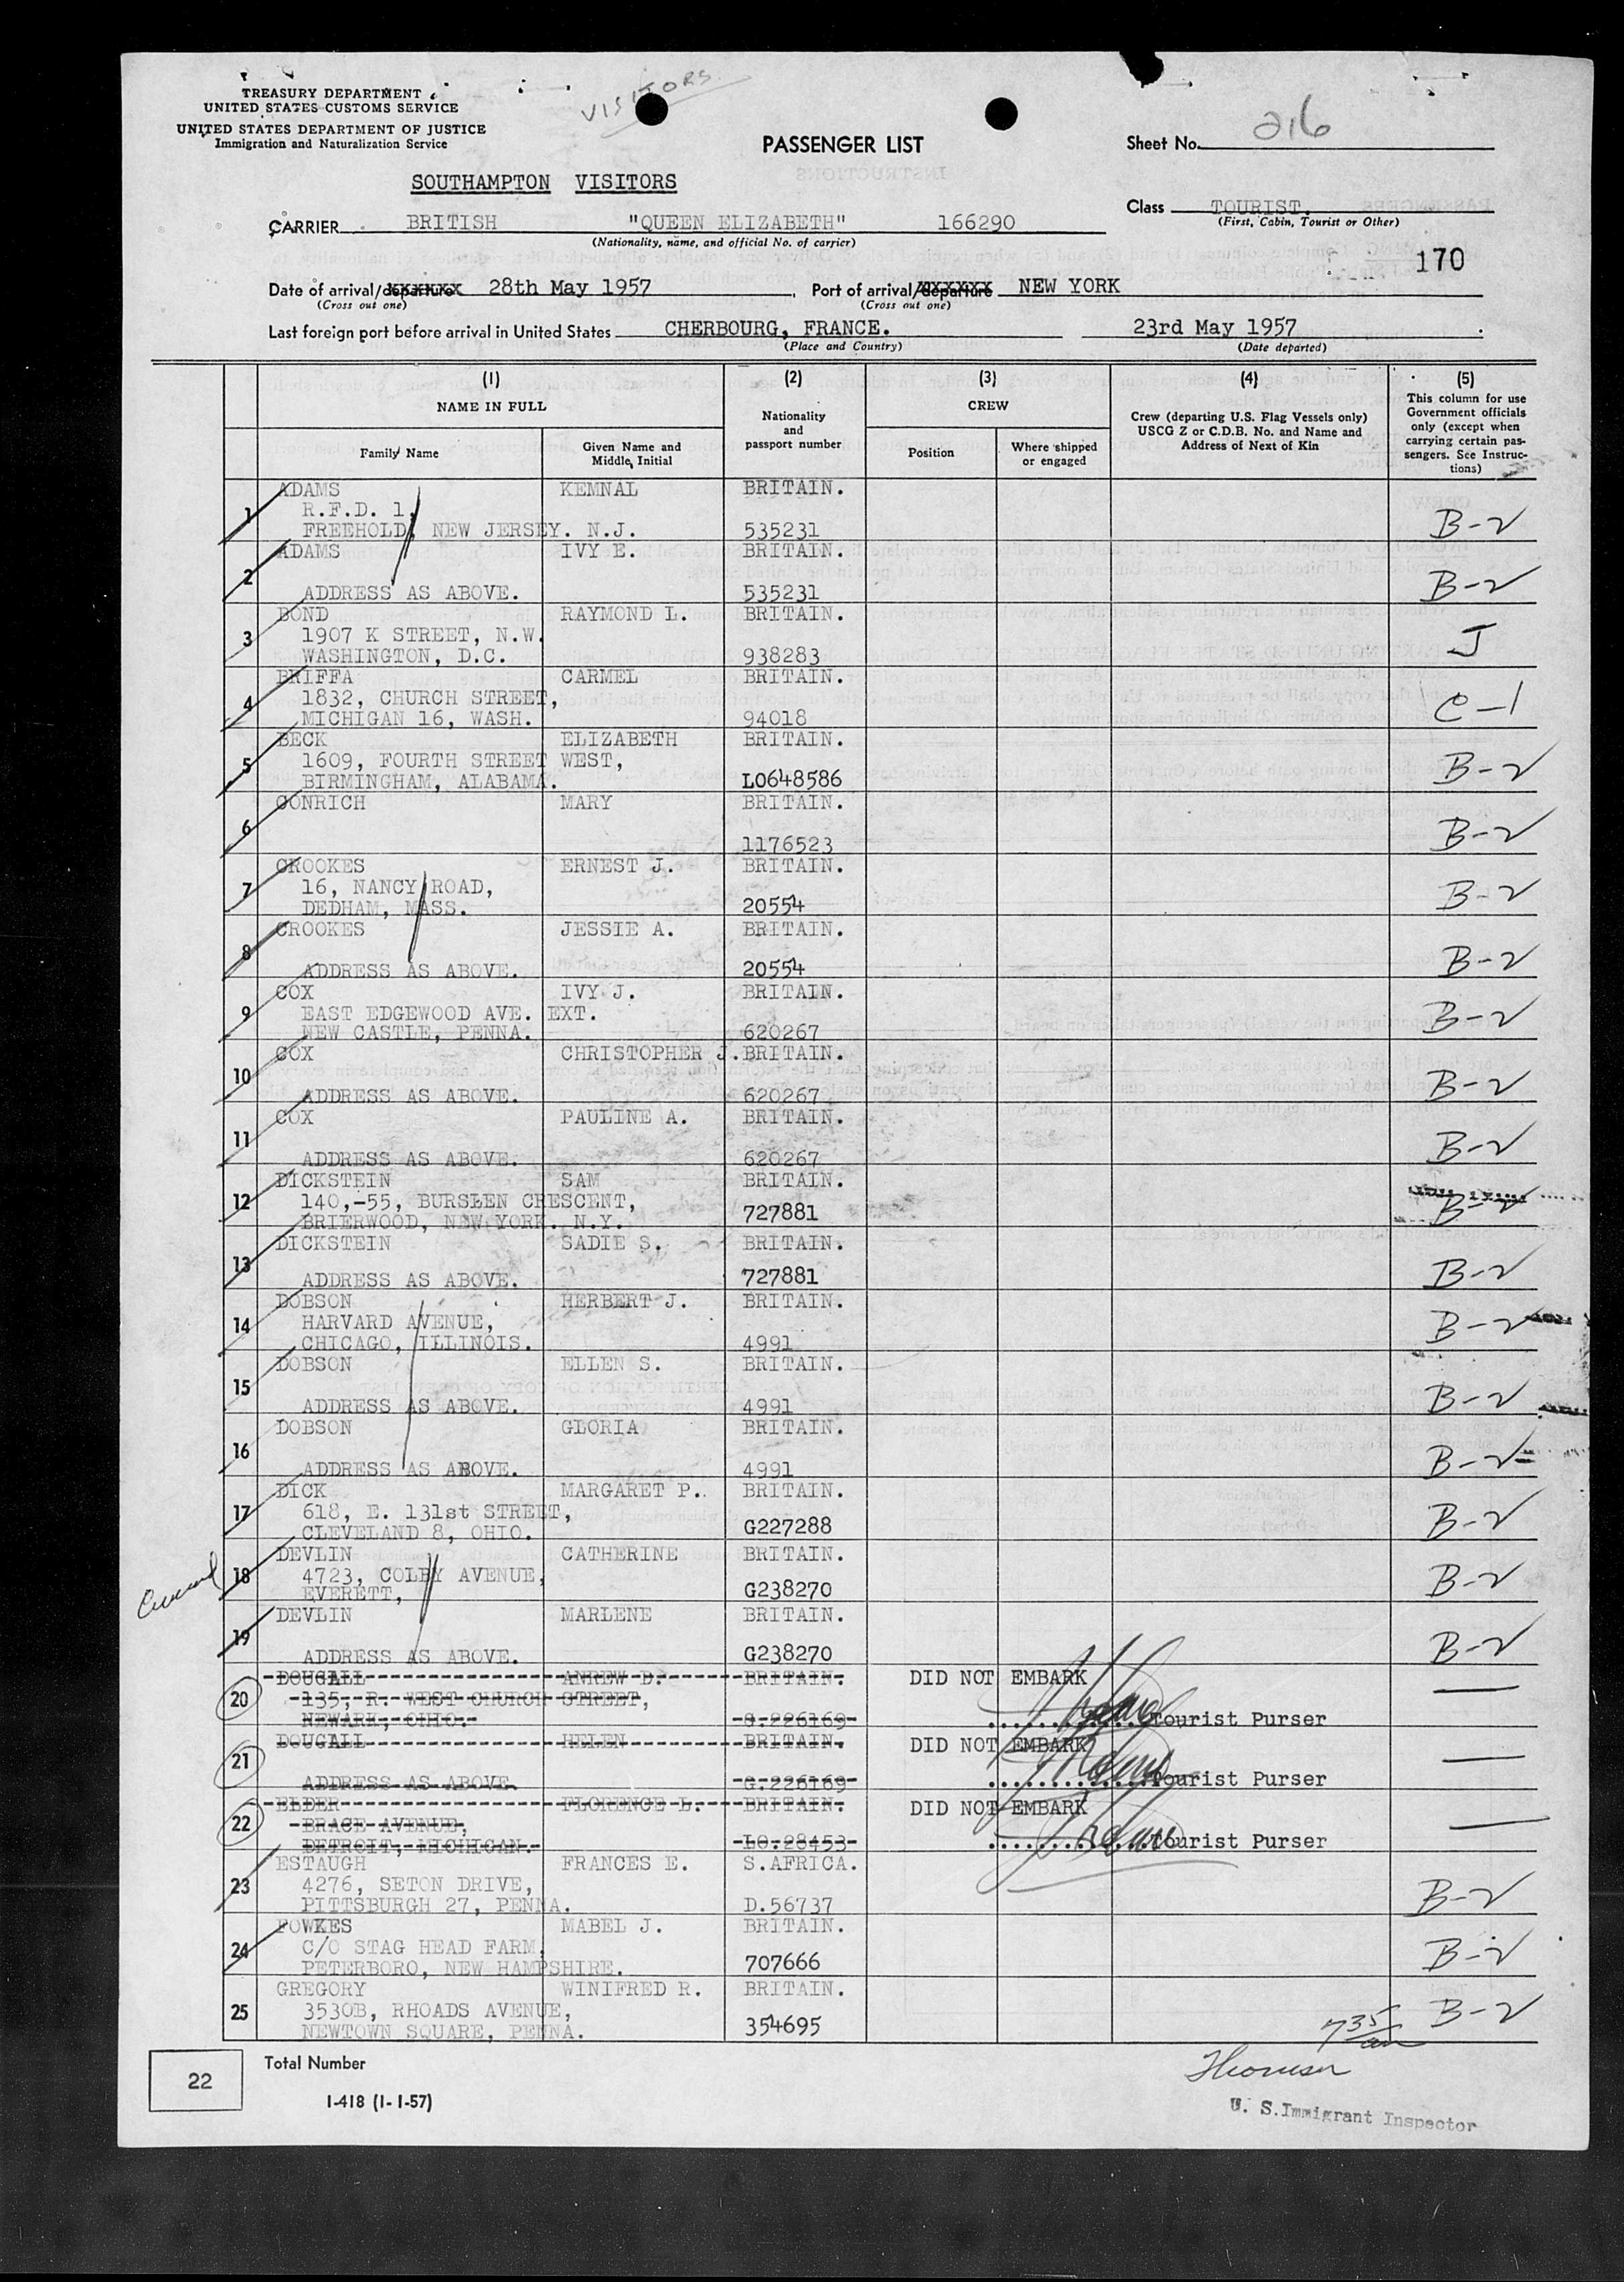 VISITORS
TREASURY DEPARTMENT
UNITED STATES CUSTOMS SERVICE
UNITED STATES DEPARTMENT OF JUSTICE
Immigration and Naturalization Service
PASSENGER LIST
Sheet No. 216
SOUTHAMPTON VISITORS
Class TOURIST.
(First, Cabin, Tourist or Other)
CARRIER BRITISH "QUEEN ELIZABETH" 166290
(Nationality, name, and official No. of carrier)
170
Date of arrival/departure 28th May 1957 Port of arrival/departure NEW YORK
(Cross out one) (Cross out one)
Last foreign port before arrival in United States CHERBOURG, FRANCE. 23rd May 1957
(Place and Country) (Date departed)
(1) (2) (3) (4) (5)
NAME IN FULL
Family Name
Given Name and Middle Initial
Nationality and passport number
CREW
Position
Where shipped or engaged
Crew (departing U.S. Flag Vessels only) USCG Z or C.D.B. No. and Name and Address of Next of Kin
This column for use Government officials only (except when carrying certain passengers. See Instructions)
1 ADAMS KEMNAL BRITAIN.
R.F.D. 1,
FREEHOLD, NEW JERSEY. N.J. 535231 B-2
2 ADAMS IVY E. BRITAIN.
ADDRESS AS ABOVE. 535231 B-2
3 BOND RAYMOND L. BRITAIN.
1907 K STREET, N.W. J
WASHINGTON, D.C. 938283
4 BRIFFA CARMEL BRITAIN.
1832, CHURCH STREET, C-1
MICHIGAN 16, WASH. 94018
5 BECK ELIZABETH BRITAIN.
1609, FOURTH STREET WEST,
BIRMINGHAM, ALABAMA. L0648586 B-2
6 CONRICH MARY BRITAIN.
1176523 B-2
7 CROOKES ERNEST J. BRITAIN.
16, NANCY ROAD,
DEDHAM, MASS. 20554 B-2
8 CROOKES JESSIE A. BRITAIN.
ADDRESS AS ABOVE. 20554 B-2
9 COX IVY J. BRITAIN.
EAST EDGEWOOD AVE. EXT.
NEW CASTLE, PENNA. 620267 B-2
10 COX CHRISTOPHER J. BRITAIN.
ADDRESS AS ABOVE. 620267 B-2
11 COX PAULINE A. BRITAIN.
ADDRESS AS ABOVE. 620267 B-2
12 DICKSTEIN SAM BRITAIN.
140,-55, BURSLEN CRESCENT, 727881 B-2
BRIERWOOD, NEW YORK. N.Y.
13 DICKSTEIN SADIE S. BRITAIN.
ADDRESS AS ABOVE. 727881 B-2
14 DOBSON HERBERT J. BRITAIN.
HARVARD AVENUE,
CHICAGO, ILLINOIS. 4991 B-2
15 DOBSON ELLEN S. BRITAIN.
ADDRESS AS ABOVE. 4991 B-2
16 DOBSON GLORIA BRITAIN.
ADDRESS AS ABOVE. 4991 B-2
17 DICK MARGARET P. BRITAIN.
618, E. 131st STREET,
CLEVELAND 8, OHIO. G227288 B-2
18 DEVLIN CATHERINE BRITAIN.
4723, COLBY AVENUE,
EVERETT, G238270 B-2
19 DEVLIN MARLENE BRITAIN.
ADDRESS AS ABOVE. G238270 B-2
20 DOUGALL ANREW D. BRITAIN. DID NOT EMBARK
135, R. WEST CHURCH STREET,
NEWARK, OHIO. G.226169 Tourist Purser
21 DOUGALL HELEN BRITAIN. DID NOT EMBARK
ADDRESS AS ABOVE G.226169 Tourist Purser
22 ELDER FLORENCE L. BRITAIN. DID NOT EMBARK
BRACE AVENUE,
DETROIT, MICHIGAN. LO.28453 Tourist Purser
23 ESTAUGH FRANCES E. S.AFRICA.
4276, SETON DRIVE,
PITTSBURGH 27, PENNA. D.56737 B-2
24 FOWKES MABEL J. BRITAIN.
C/O STAG HEAD FARM,
PETERBORO, NEW HAMPSHIRE. 707666 B-2
25 GREGORY WINIFRED R. BRITAIN.
3530B, RHOADS AVENUE,
NEWTOWN SQUARE, PENNA. 354695 B-2
735
22 Total Number
I-418 (1-1-57)
U. S. Immigrant Inspector